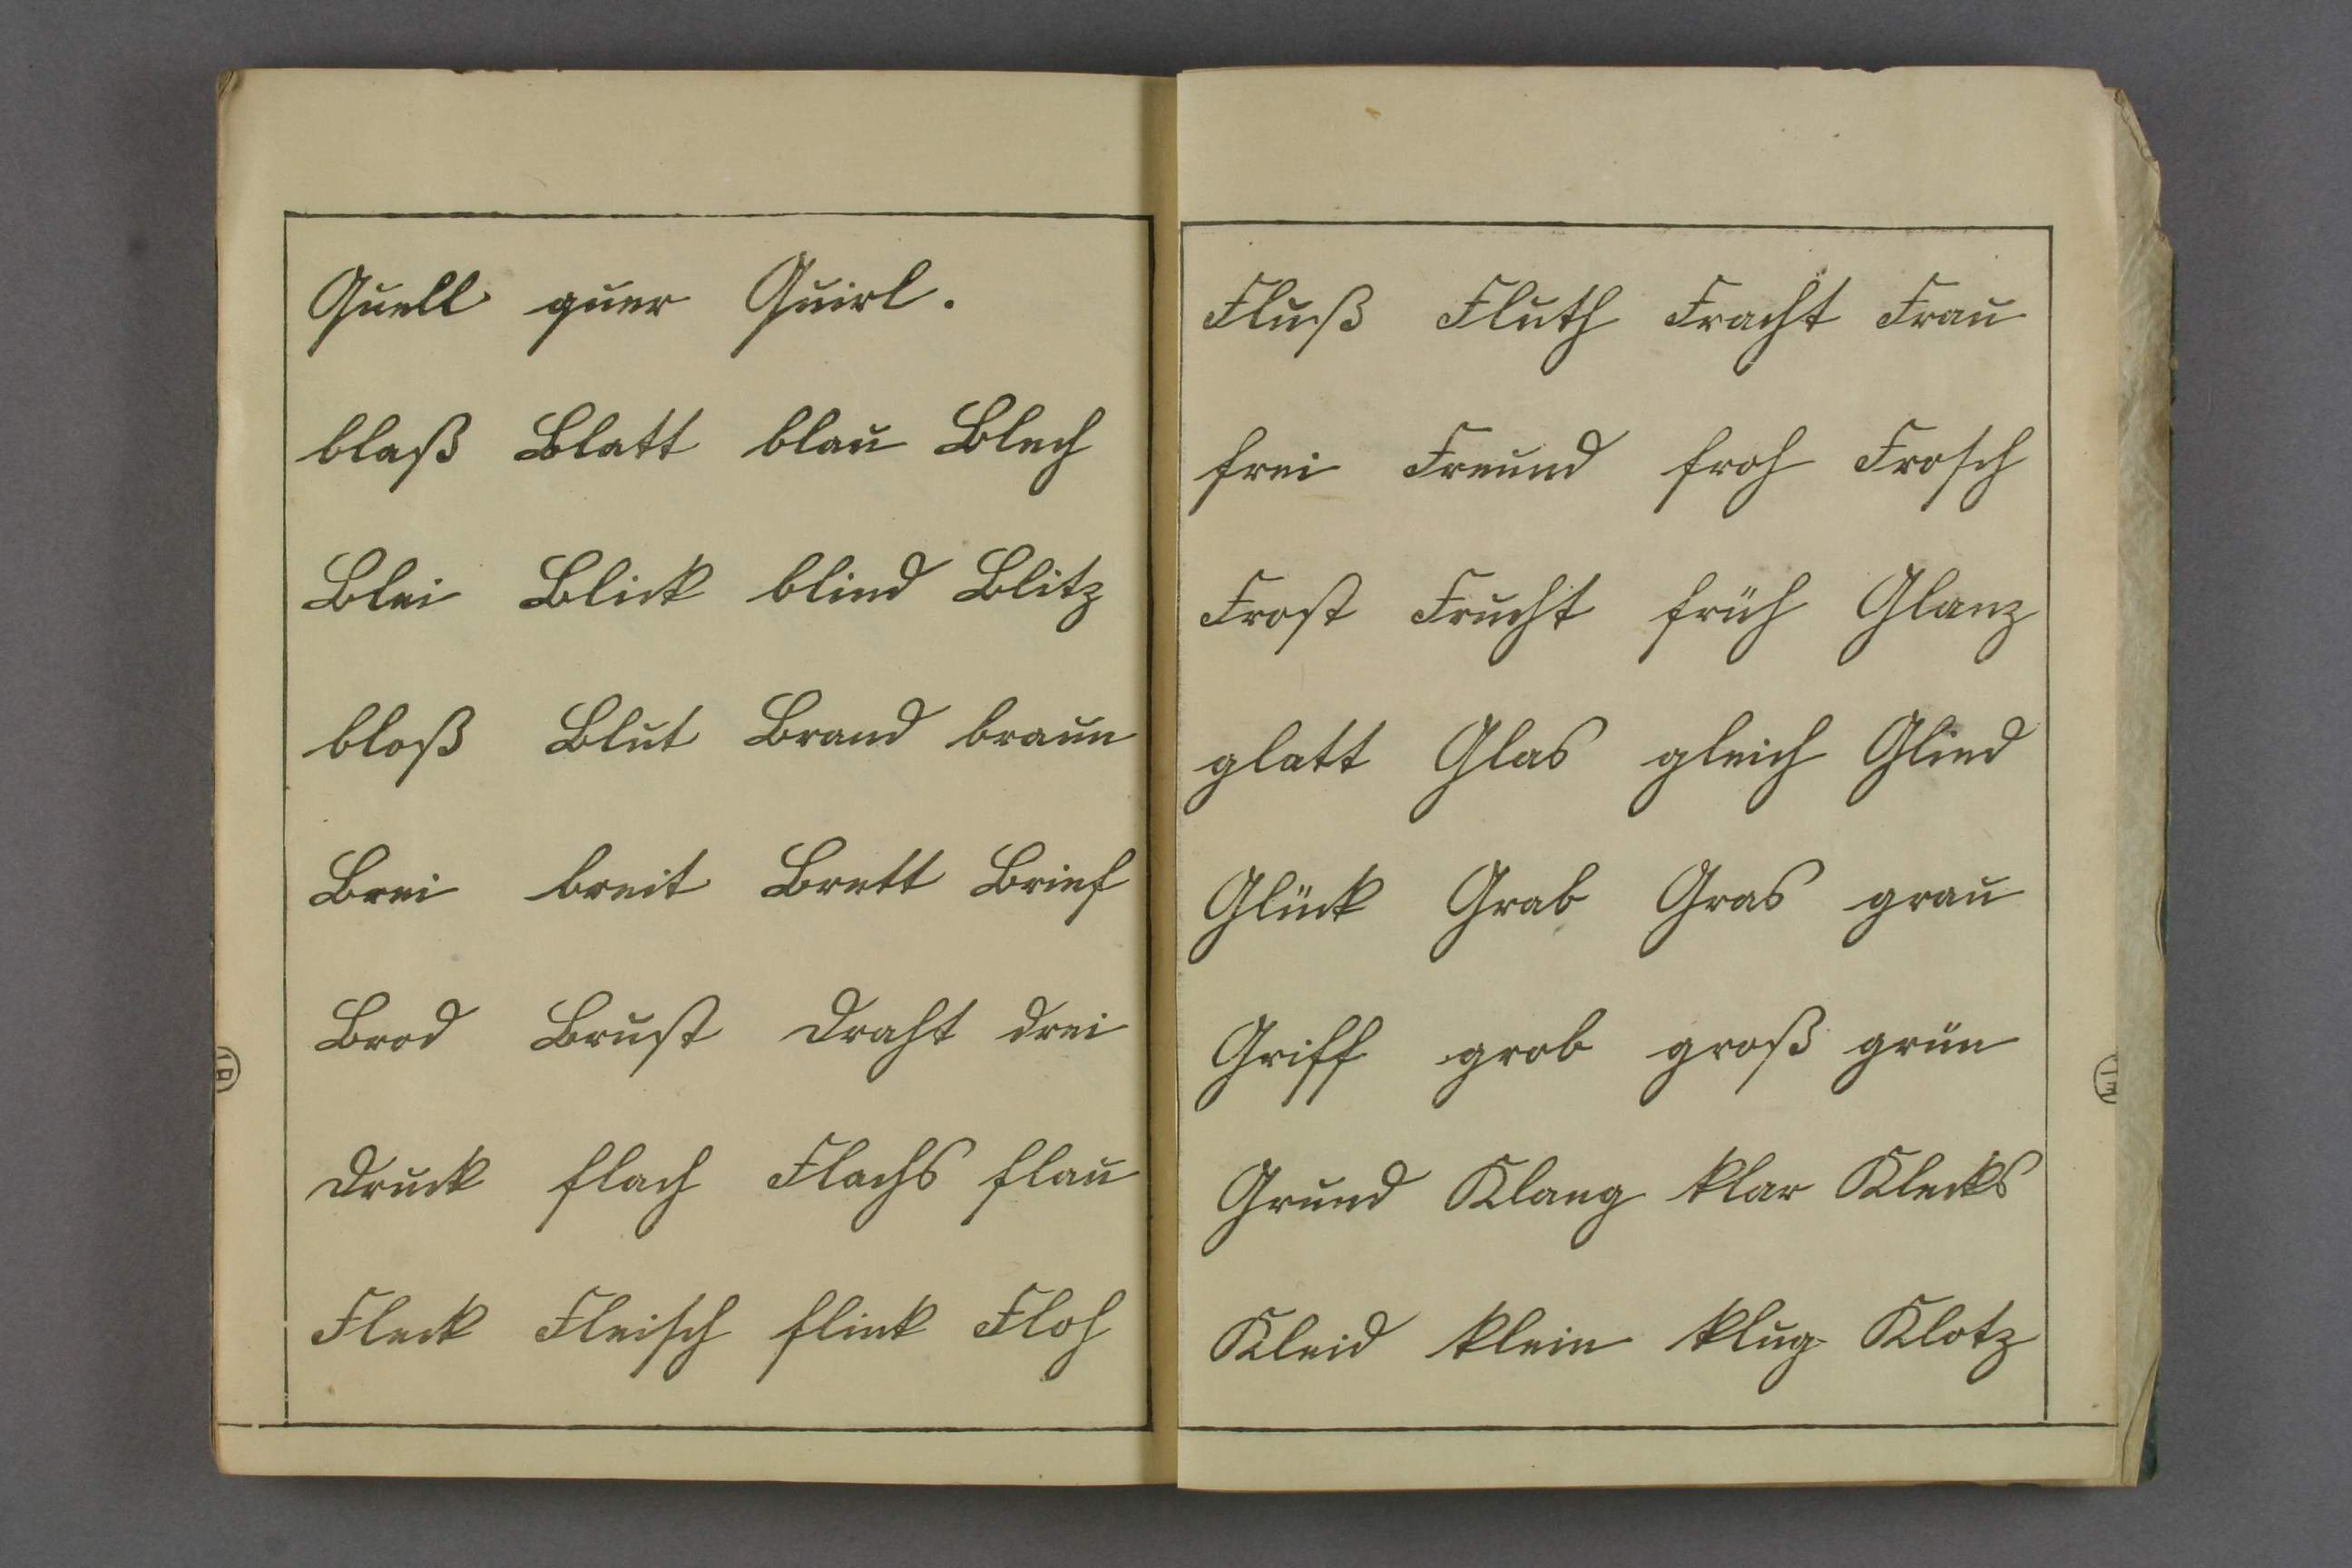 Quell quer Quirl.
blaß Blatt blau Blech
Blei Blick blind Blitz
bloß Blut Brand braun
Brei breit Brett Brief
Brod Brust Draht drei
Druck flach Flachs flau
Fleck Fleisch flink Floh
Fluß Fluth Fracht Frau
frei Freund froh Frosch
Frost Frucht früh Glanz
glatt Glas gleich Glied
Glück Grab Gras grau
Griff grob groß grün
Grund Klang klar Klecks
Kleid klein klug Klotz